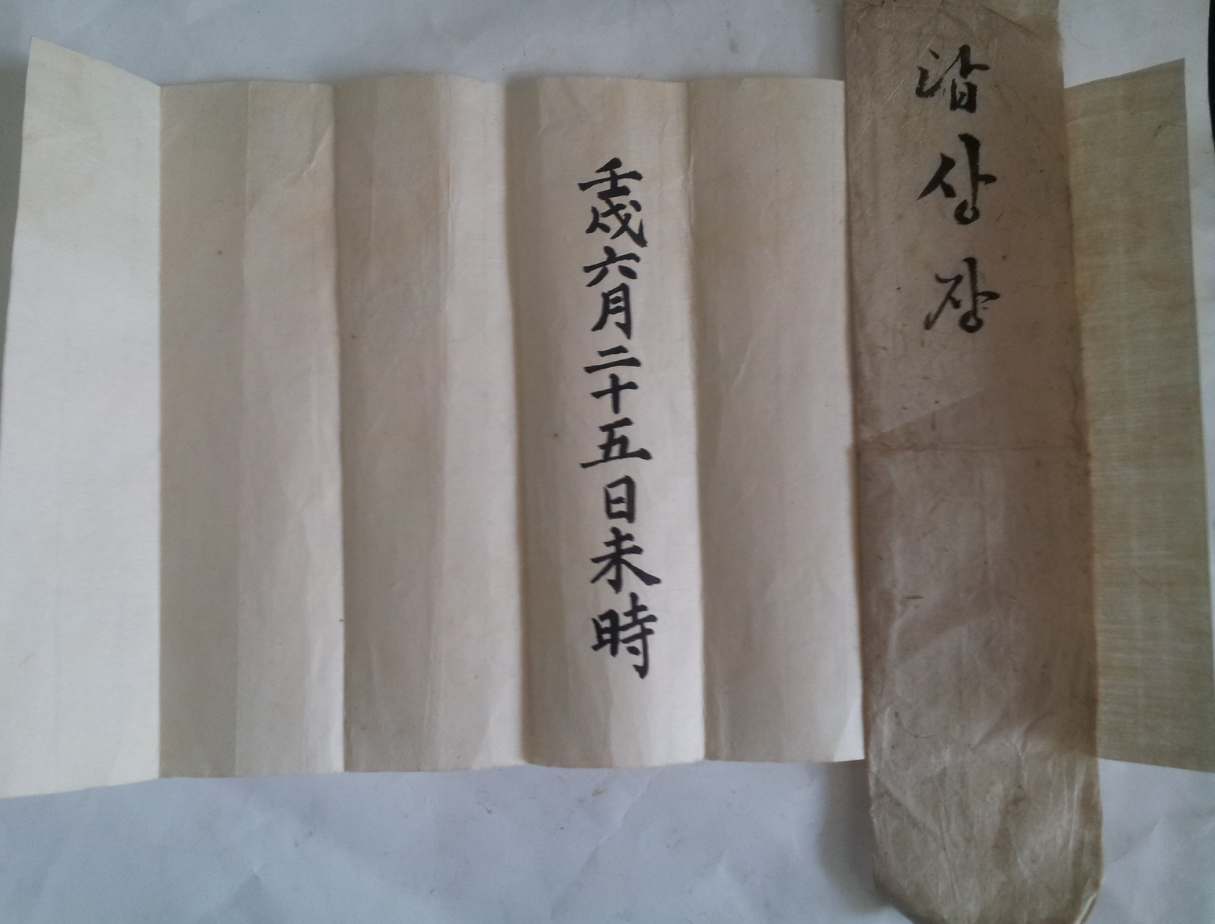 답상장
壬戌六月二十五日未時